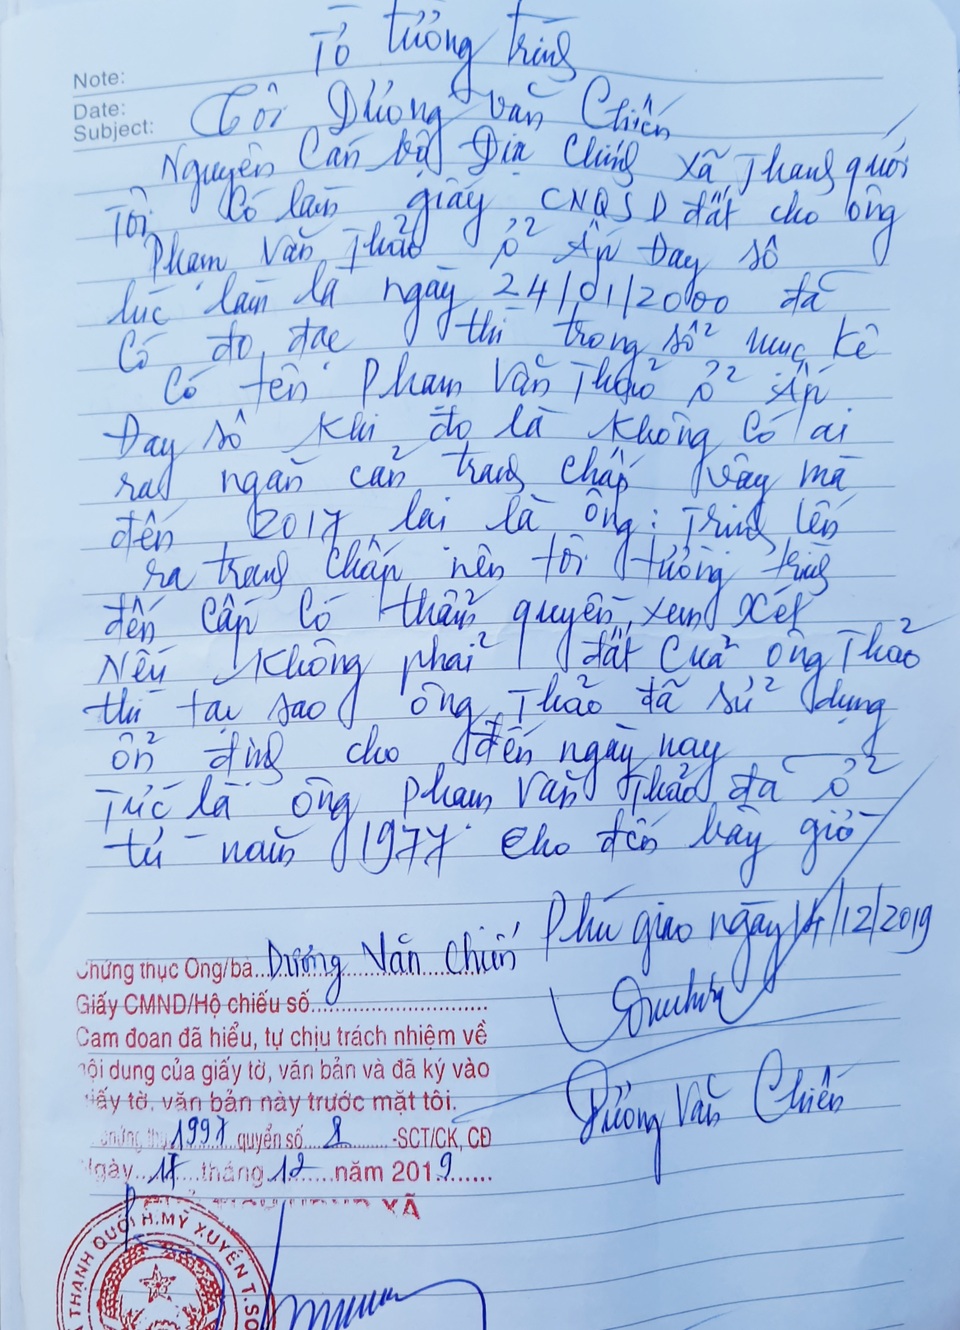 Tờ tường trình
Note:
Date:
Subject:
Tôi Dương Văn Chiến
Nguyên Cán bộ Địa Chính xã Thạnh quới
Tôi có làm giấy CNQSD đất cho ông
Phạm Văn Thảo ở Ấp Đay sô
lúc làm là ngày 24/01/2000 đã
Có đo đạc thì trong sổ mục kê
Có tên Phạm Văn Thảo ở Ấp
Đay sô khi đó là không có ai
ra ngăn cản tranh chấp vậy mà
đến 2017 lại là ông: Trinh lên
ra tranh chấp nên tôi tường trình
đến cấp có thẩm quyền, xem xét
Nếu không phải đất của ông Thảo
thì tại sao ông Thảo đã sử dụng
ổn định cho đến ngày nay
Tức là ông Phạm Văn Thảo đã ở
từ năm 1977 cho đến bây giờ
Phú giao ngày 14/12/2019
Dương Văn Chiến
Chứng thực Ông/bà...Dương Văn Chiến
Giấy CMND/Hộ chiếu số
Cam đoan đã hiểu, tự chịu trách nhiệm về
nội dung của giấy tờ, văn bản và đã ký vào
giấy tờ, văn bản này trước mặt tôi.
1997 quyển số 8 -SCT/CK, CĐ
Ngày 17 tháng 12 năm 2019
XÃ
THẠNH QUỚI H.MỸ XUYÊN T.SÓ